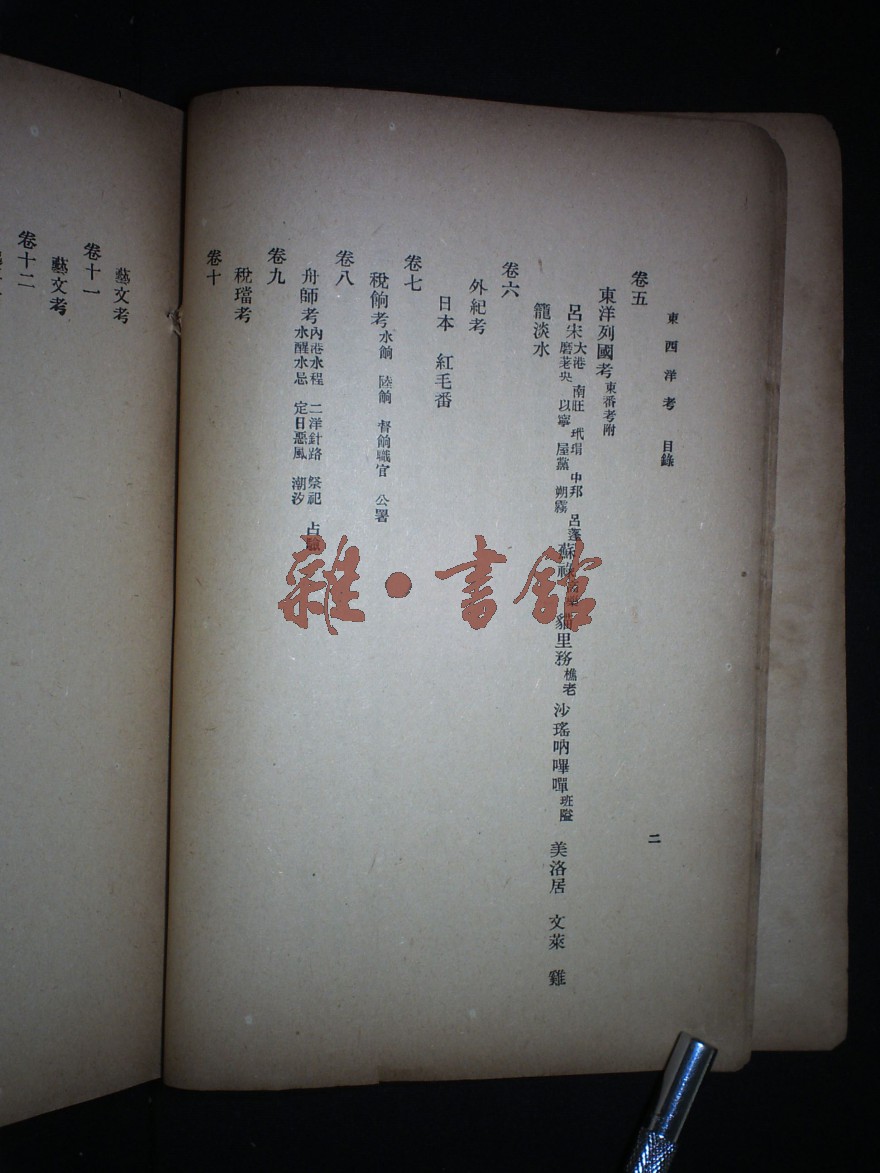 東西洋考 目錄 二
卷五
東洋列國考 東番考附
呂宋 大港 南旺 玳瑁 中邦 呂蓬 磨荖央 以寧 屋黨 朔霧 蘇祿 貓里務 樵老 沙瑤吶嗶嘽 班隘 美洛居 文萊 雞
籠淡水
卷六
外紀考
日本 紅毛番
卷七
稅餉考 水餉 陸餉 督餉職官 公署
卷八
舟師考 內港水程 二洋針路 祭祀 占 水醒水忌 定日惡風 潮汐
卷九
稅璫考
卷十
藝文考
卷十一
藝文考
卷十二
雜·書館